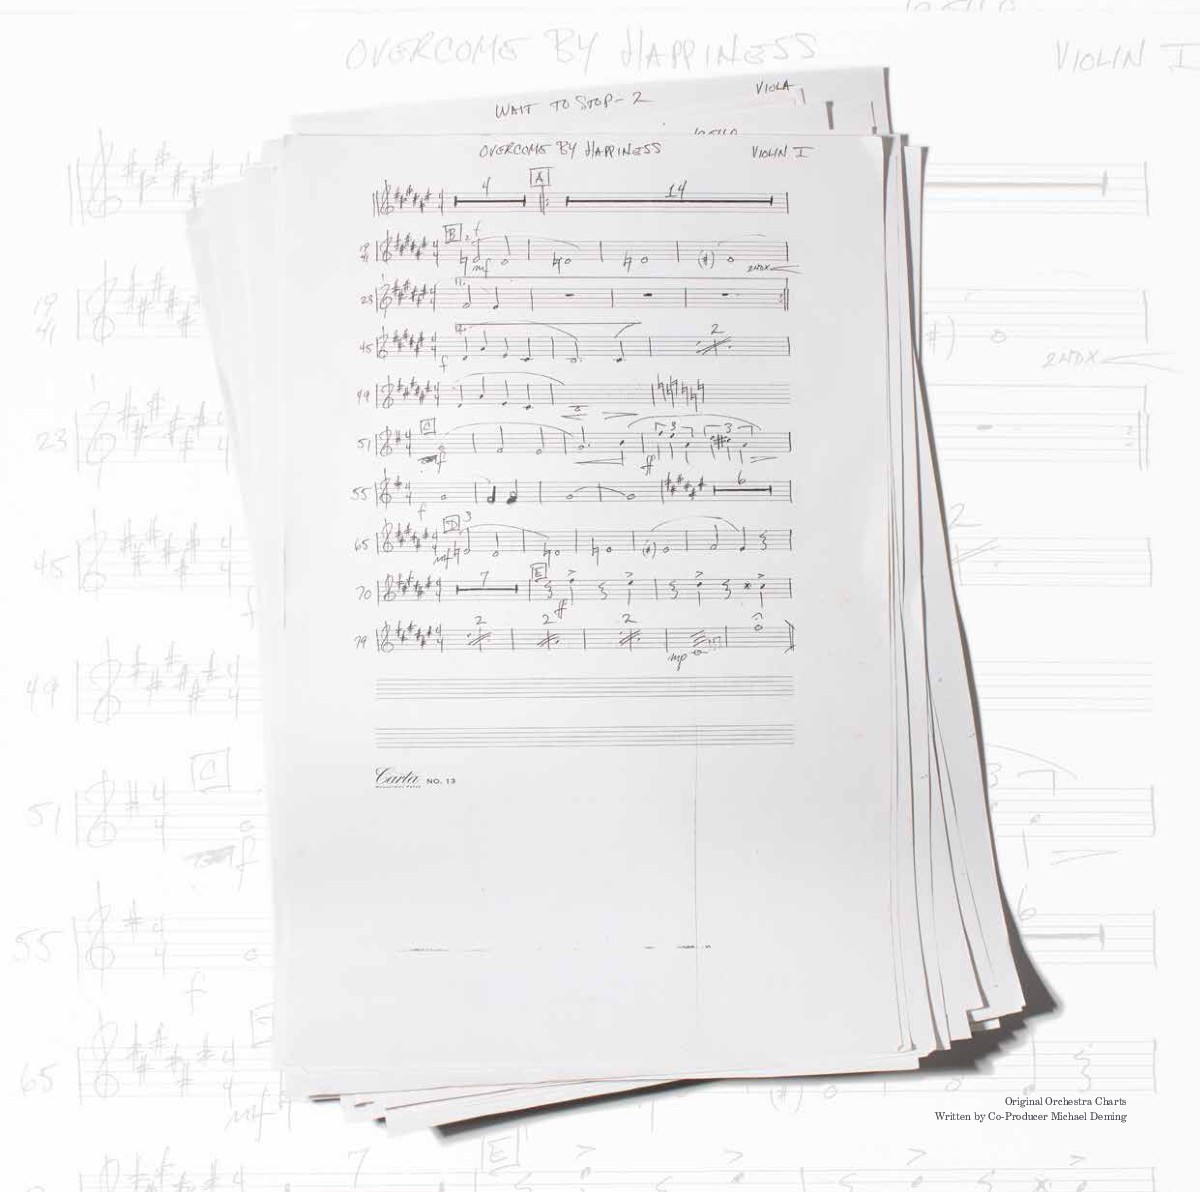 OVERCOME BY HAPPINESS VIOLIN I
WAIT TO STOP-2 VIOLA
OVERCOME BY HAPPINESS VIOLIN I
4 A 14
19 41 B 2. f
mf (#) 2NDX
23 1.
45 2. 2
f
49
51 C 3 3
f ff
55 6
f
65 D 3
mf (#)
70 7 E
ff
79 2 2 2
mp
Carta NO. 13
19
41
2NDX
23
45 2
f
49
C 3
51
f
55 6
f
65
mf (#)
7 E
Original Orchestra Charts
Written by Co-Producer Michael Deming